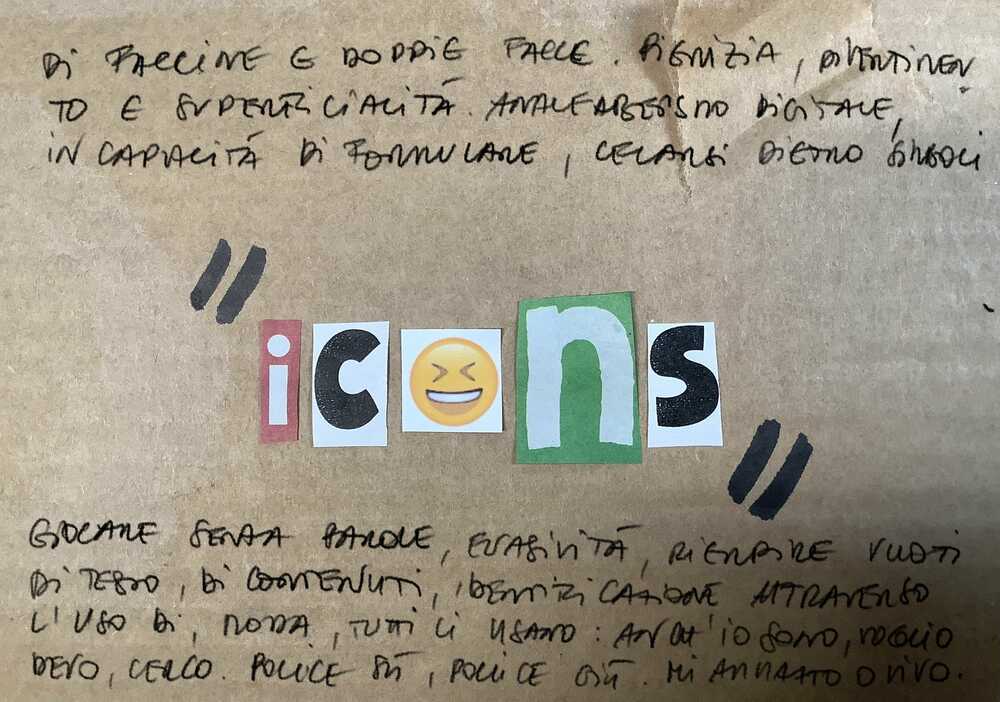 DI FACCINE E DOPPIE FACCE. PIGRIZIA, DIVERTIMEN
TO E SUPERFICIALITÀ. ANALFABETISMO DIGITALE,
INCAPACITÀ DI FORMULARE, CELARSI DIETRO SIMBOLI
"icons"
GIOCARE SENZA PAROLE, EVASIVITÀ, RIEMPIRE VUOTI
DI TESTO, DI CONTENUTI, IDENTIFICAZIONE ATTRAVERSO
L'USO DI, MODA, TUTTI LI USANO: ANCH'IO SONO, VOGLIO
DEVO, CERCO. POLLICE SÙ, POLLICE GIÙ. MI AMMAZZO O VIVO.